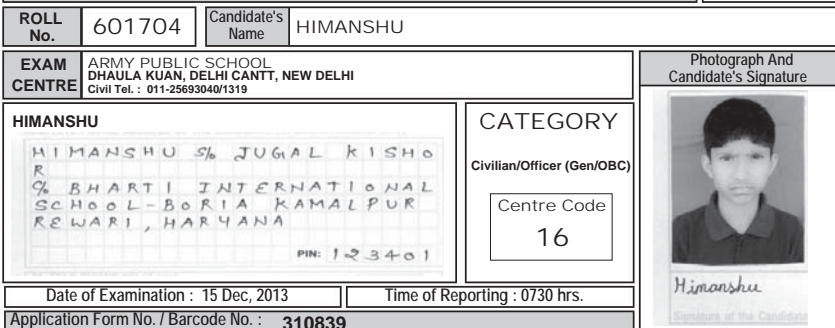 ROLL No. 601704 Candidate's Name HIMANSHU
EXAM CENTRE ARMY PUBLIC SCHOOL
DHAULA KUAN, DELHI CANTT, NEW DELHI
Civil Tel. : 011-25693040/1319
Photograph And
Candidate's Signature
HIMANSHU
HIMANSHU S/o JUGAL KISHO
R
C/o BHARTI INTERNATIONAL
SCHOOL-BORIA KAMALPUR
REWARI, HARYANA
PIN: 123401
CATEGORY
Civilian/Officer (Gen/OBC)
Centre Code
16
Himanshu
Signature of the Candidate
Date of Examination : 15 Dec, 2013 Time of Reporting : 0730 hrs.
Application Form No. / Barcode No. : 310839